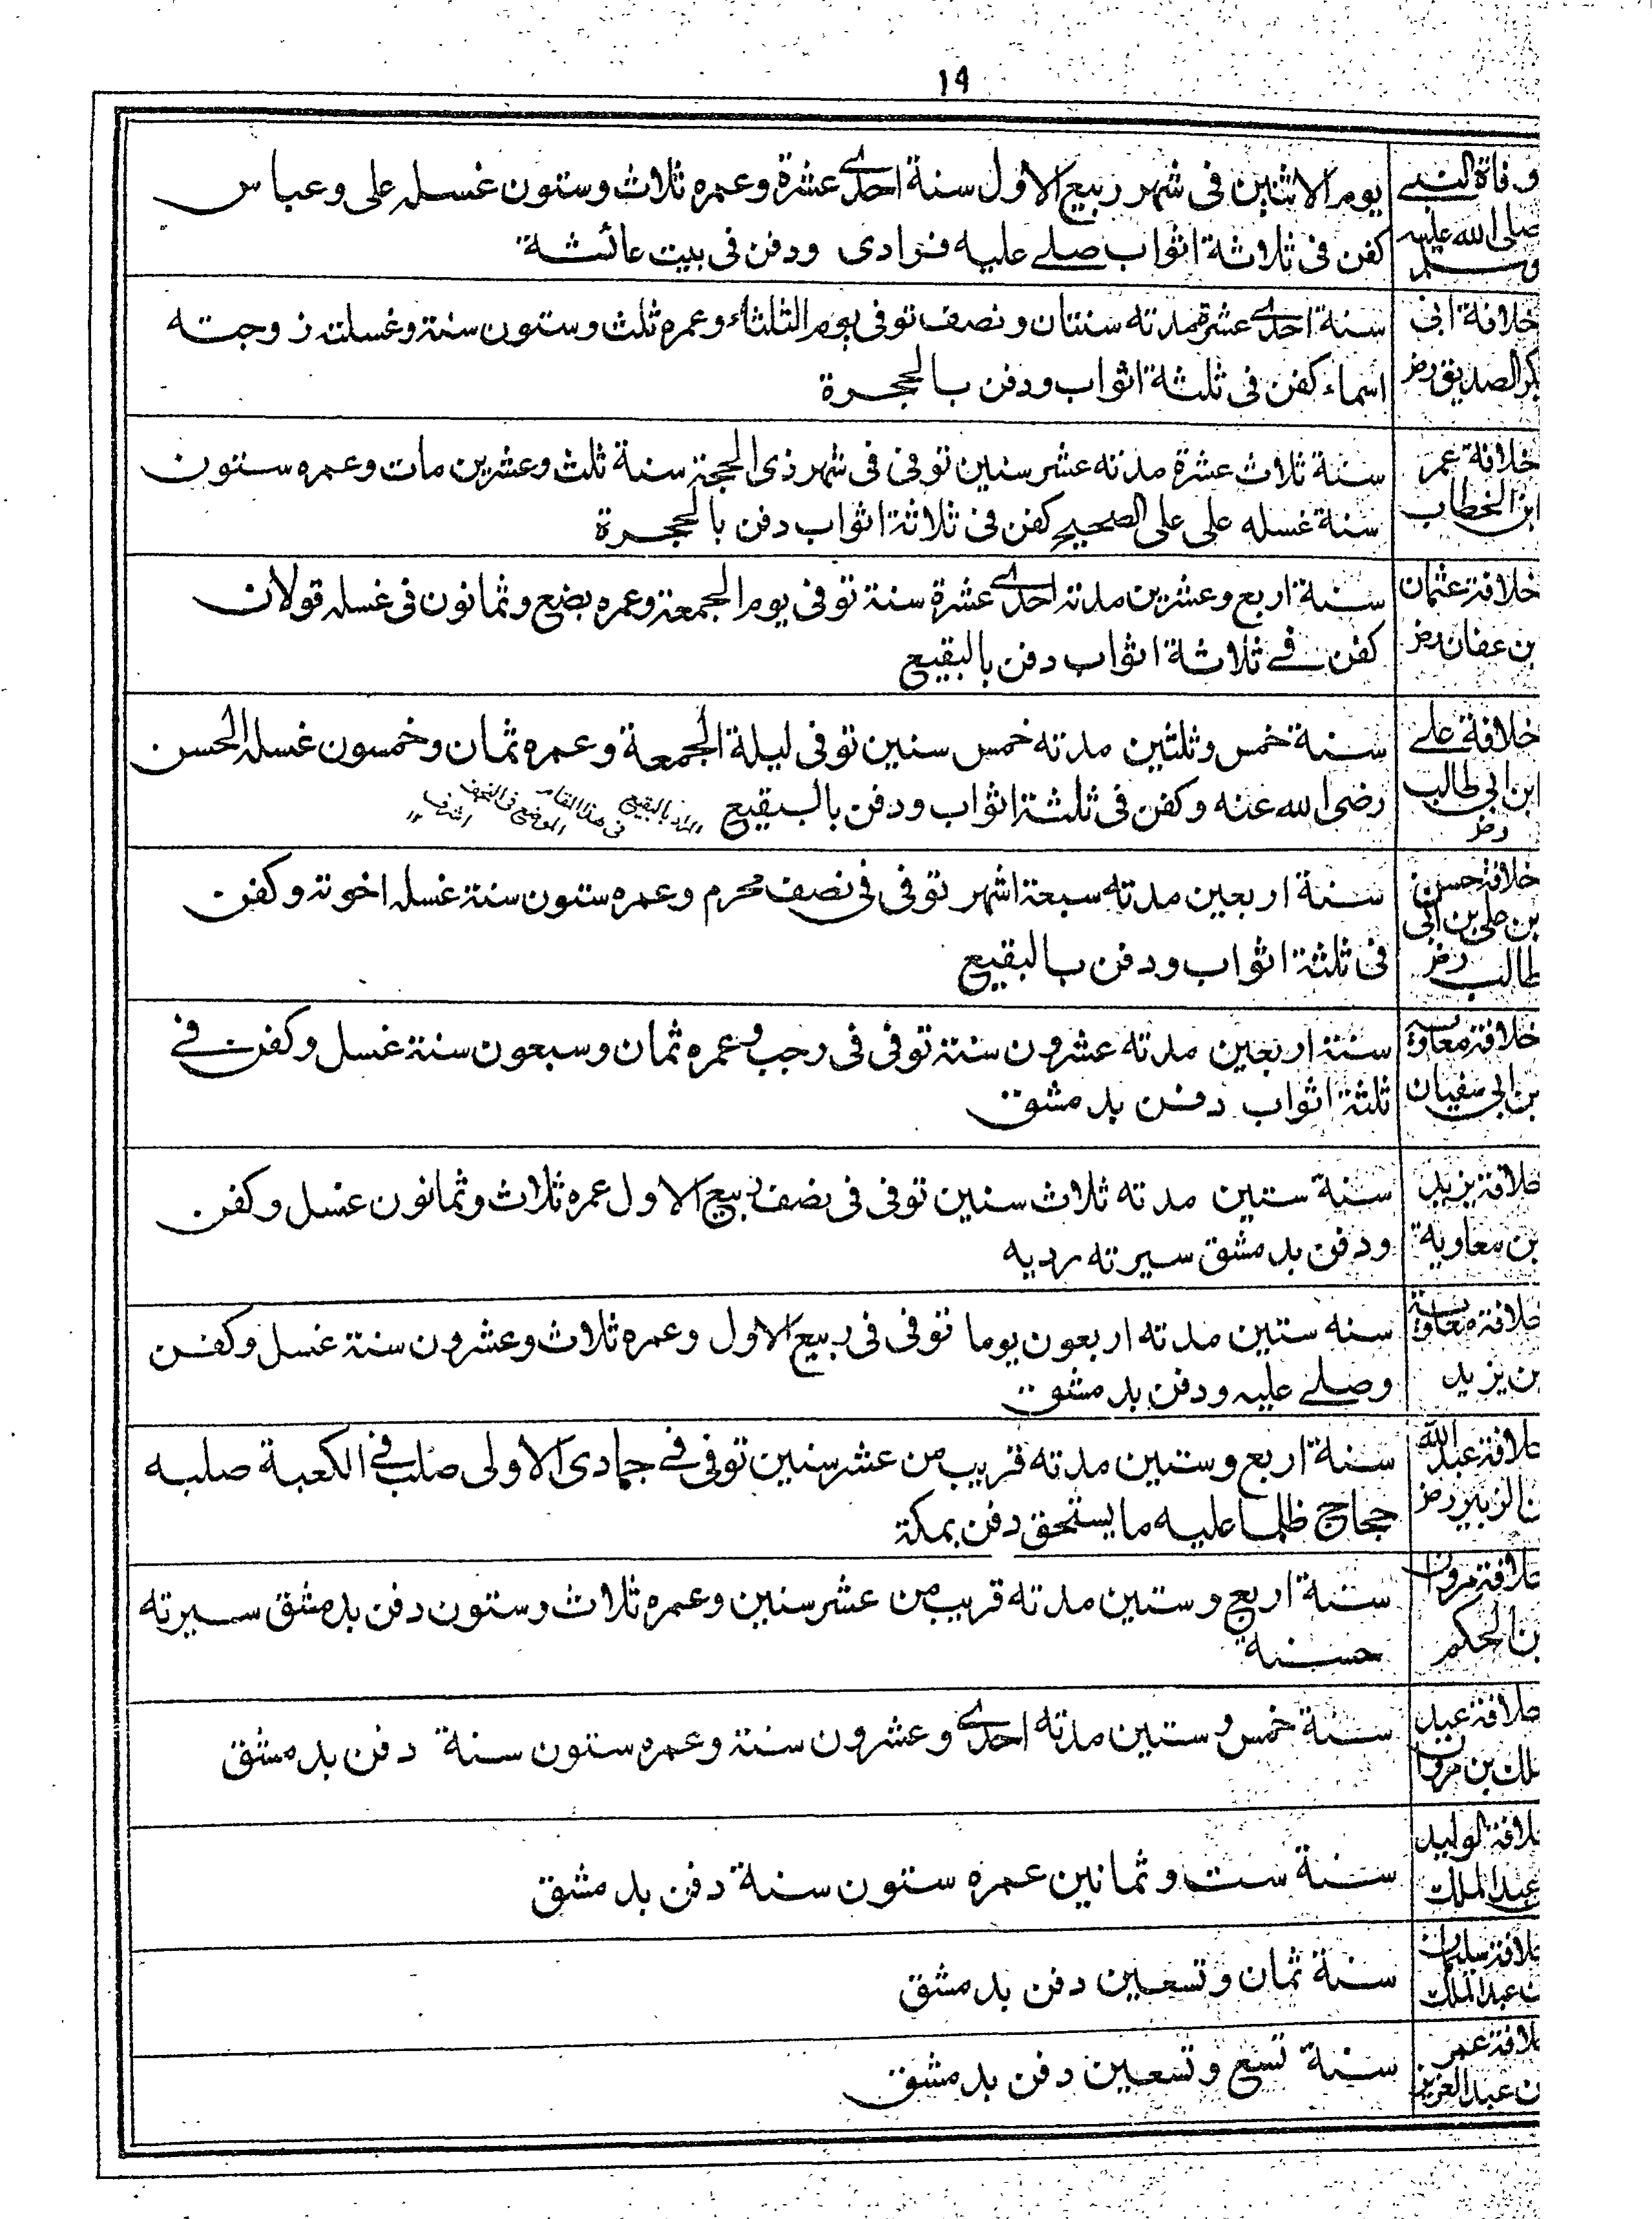 ١٩
وفاة النبي
صلى الله عليه
وسلم
يوم الاثنين فى شهر ربيع الاول سنة احدى عشرة وعمره ثلاث وستون غسله على وعباس
كفن فى ثلاثة اثواب صلے عليه فرادى ودفن فى بيت عائشة
خلافة ابى
بكر الصديق رضـ
سنة احدى عشرة مدته سنتان ونصف توفى يوم الثلثاء وعمره ثلث وستون سنة وغسلته زوجته
اسماء كفن فى ثلثة اثواب ودفن بالحجرة
خلافة عمر
ابن الخطاب
سنة ثلاث عشرة مدته عشر سنين توفى فى شهر ذى الحجة سنة ثلث وعشرين مات وعمره ستون
سنة غسله على على الصحيح كفن فى ثلاثة اثواب دفن بالحجرة
خلافة عثمان
بن عفان رضـ
سنة اربع وعشرين مدته احدى عشرة سنة توفى يوم الجمعة وعمره بضع وثمانون فى غسله قولان
كفن فے ثلاثة اثواب دفن بالبقيع
خلافة علے
ابن ابي طالب
رضـ
سنة خمس وثلثين مدته خمس سنين توفى ليلة الجمعة وعمره ثمان وخمسون غسله الحسن
رضى الله عنه وكفن فى ثلثة اثواب ودفن بالبقيع
المراد بالبقيع
فى هذا المقام
الموضع فى النجف
اشرف
خلافة حسن
بن على بن ابى
طالب رضـ
سنة اربعين مدته سبعة اشهر توفى فى نصف محرم وعمره ستون سنة غسله اخوته وكفن
فى ثلثة اثواب ودفن بالبقيع
خلافة معاوية
بن ابي سفيان
سنة اربعين مدته عشرون سنة توفى فى رجب وعمره ثمان وسبعون سنة غسل وكفن فے
ثلثة اثواب دفن بدمشق
خلافة يزيد
بن معاوية
سنة ستين مدته ثلاث سنين توفى فى نصف ربيع الاول عمره ثلاث وثمانون غسل وكفن
ودفن بدمشق سيرته رديه
خلافة معاوية
بن يزيد
سنه ستين مدته اربعون يوما توفى فى ربيع الاول وعمره ثلاث وعشرون سنة غسل وكفن
وصلے عليه ودفن بدمشق
خلافة عبد الله
بن الزبير رضـ
سنة اربع وستين مدته قريب من عشر سنين توفى فے جمادى الاولى صلب فے الكعبة صلبه
حجاج ظلما عليه ما يستحق دفن بمكة
خلافة مروان
بن الحكم
سنة اربع وستين مدته قريب من عشر سنين وعمره ثلاث وستون دفن بدمشق سيرته
حسنة
خلافة عبد
الملك بن مروان
سنة خمس وستين مدته احدى وعشرون سنة وعمره ستون سنة دفن بدمشق
خلافة الوليد
عبد الملك
سنة ست وثمانين عمره ستون سنة دفن بدمشق
خلافة سليمان
بن عبد الملك
سنة ثمان وتسعين دفن بدمشق
خلافة عمر
بن عبد العزيز
سنة تسع وتسعين دفن بدمشق